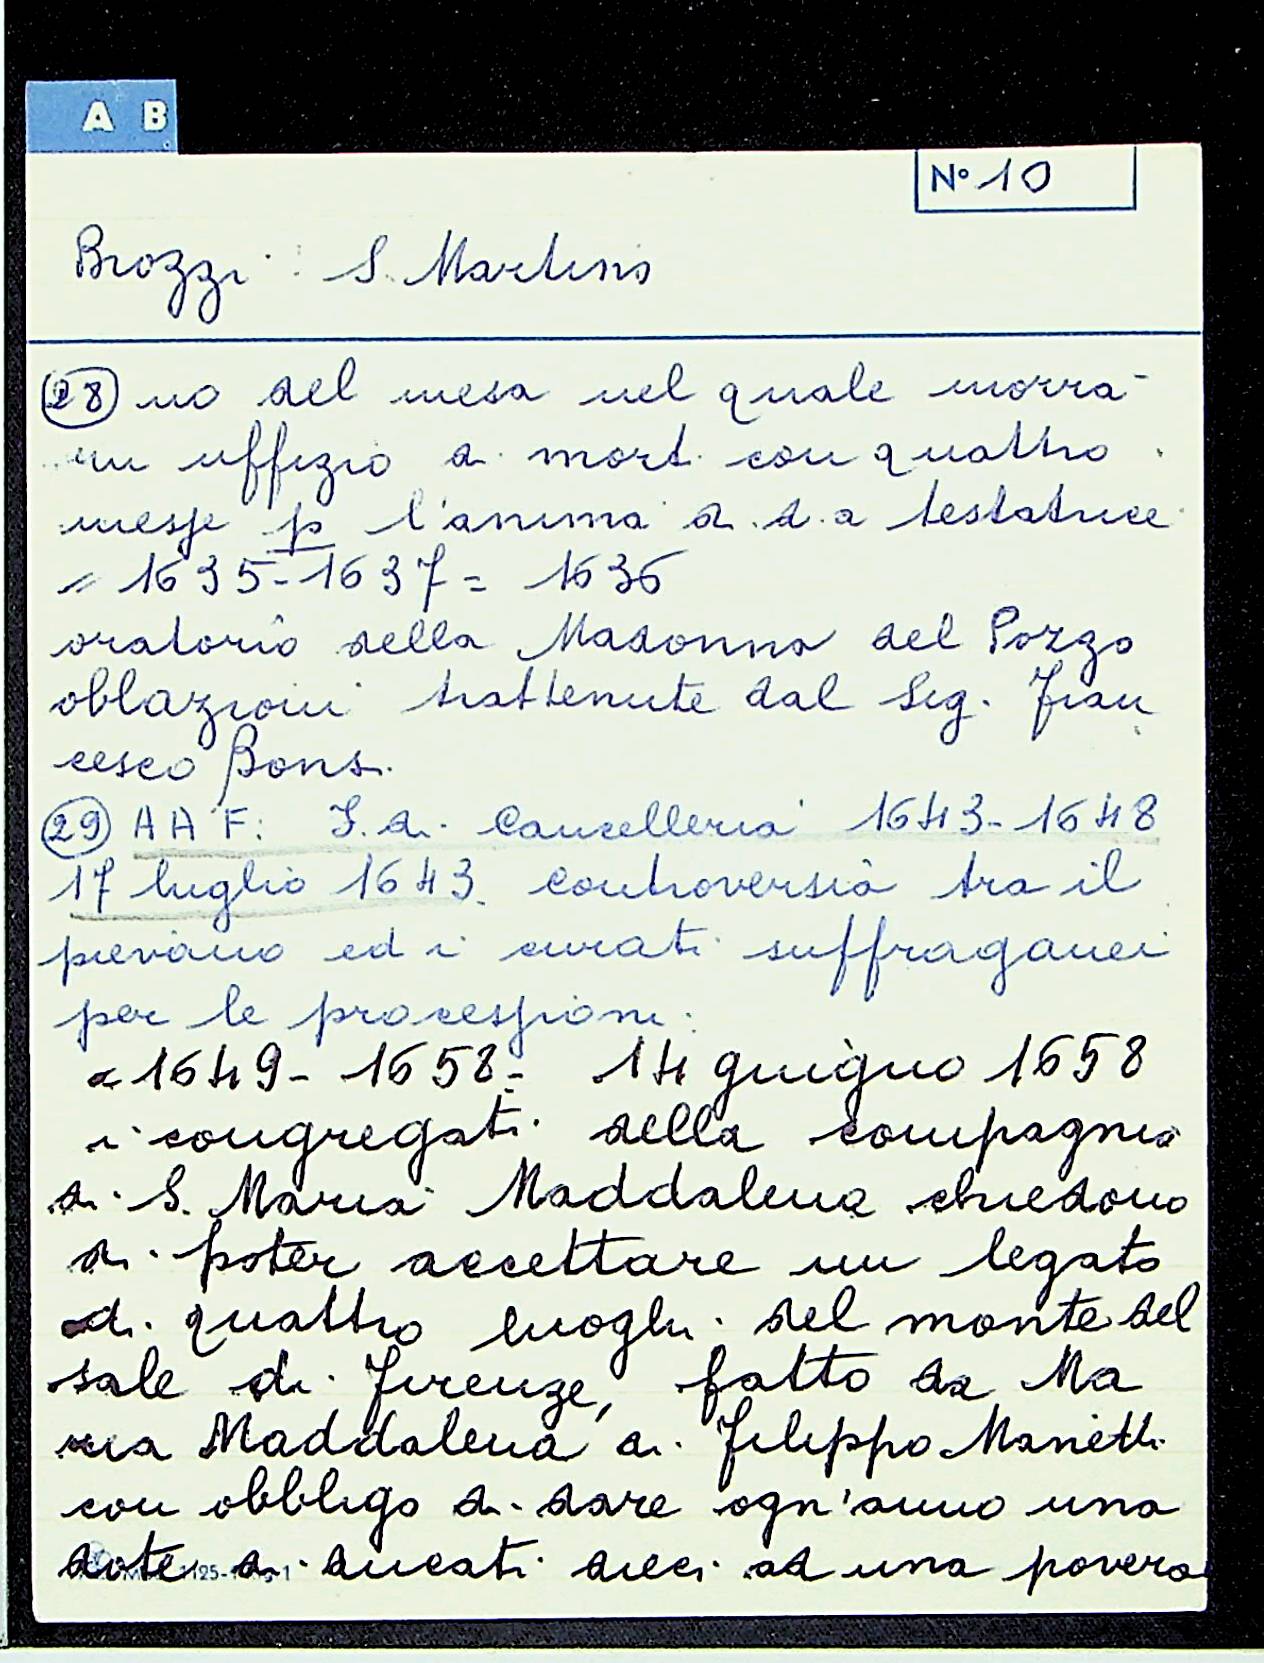 A B
N° 10
Brozzi : S. Martino
28 no del mese nel quale morrà
un uffizio di morti con quattro
messe p l'anima di d.a testatrice
= 1635-1637 = 1636
oratorio della Madonna del Pozzo
oblazioni trattenute dal Sig. Fran
cesco Bonsi.
29 A A F: F. di Cancelleria 1643-1648
17 luglio 1643. controversia tra il
pievano ed i curati suffraganei
per le processioni.
= 1649 - 1658 = 14 giugno 1658
i congregati della compagnia
di S. Maria Maddalena chiedono
di poter accettare un legato
di quattro luoghi del monte del
sale di Firenze, fatto da Ma
ria Maddalena di Filippo Manetti
con obbligo di dare ogn'anno una
dote di ducati dieci ad una povera